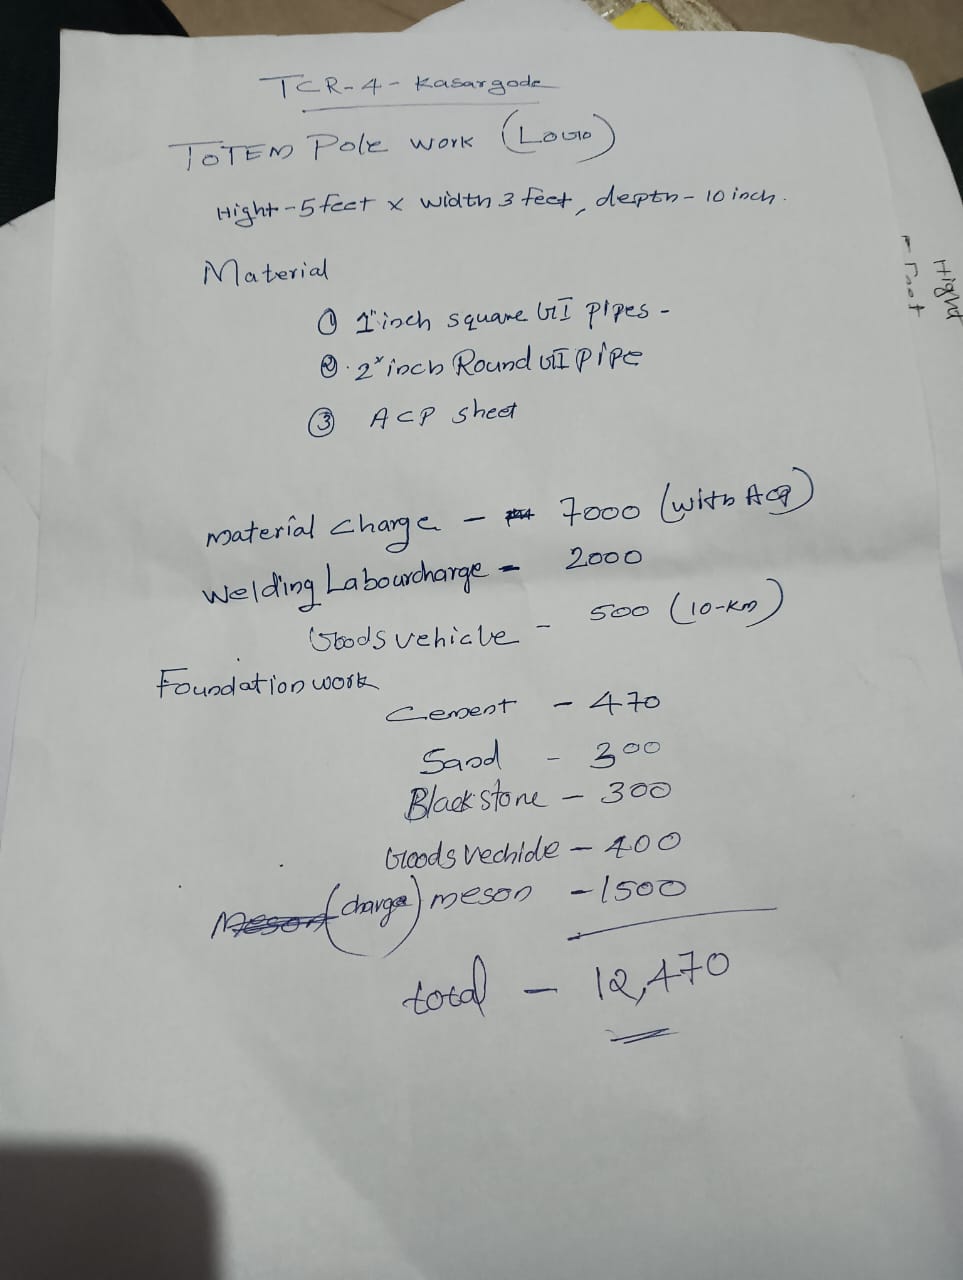 TCR-4-Kasargode
TOTEM Pole work (Logo)
Hight-5 feet x width 3 feet, desptn-10 inch.
Material
① 1" inch square GI pipes -
② . 2" inch Round GI pipe
③ ACP sheet
material charge - 7000 (with Acp)
Welding Labourcharge - 2000
Goods vehicle - 500 (10-km)
Foundation work
Cement - 470
Sand - 300
Black stone - 300
Goods Vechicle - 400
Meson (charge) meson - 1500
total - 12,470
Hight
Foot